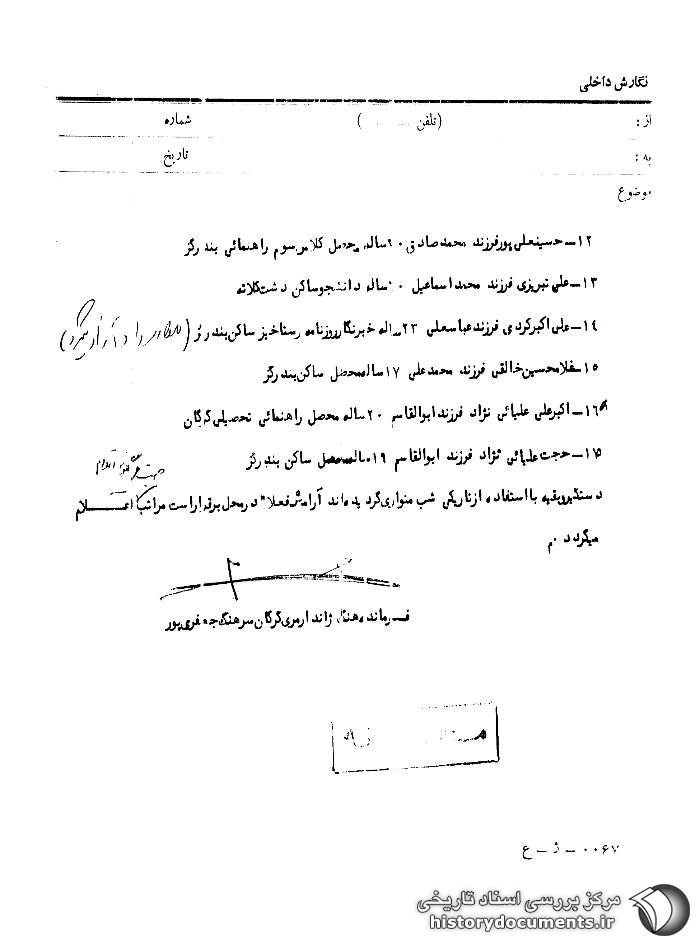 نگارش داخلی
از : (تلفن ... ) شماره
به : تاریخ
موضوع
۱۲ـ حسینعلی پور فرزند محمد صادق ۲۰ ساله محصل کلاس سوم راهنمائی بندرگز
۱۳ـ علی تبریزی فرزند محمد اسماعیل ۲۰ ساله دانشجو ساکن دشت کلاته
۱۴ـ علی اکبر کردی فرزند عباسعلی ۲۳ ساله خبرنگار روزنامه رستاخیز ساکن بندرگز (
۱۵ـ غلامحسین خالقی فرزند محمد علی ۱۷ ساله محصل ساکن بندرگز
۱۶ـ اکبر علی علیائی نژاد فرزند ابوالقاسم ۲۰ ساله محصل راهنمائی تحصیلی گرگان
۱۷ـ حجت علیائی نژاد فرزند ابوالقاسم ۱۹ ساله محصل ساکن بندرگز
دستگیر و بقیه با استفاده از تاریکی شب متواری گردیده اند آرامش فعلا" در محل برقرار است مراتب اعلام
میگردد م
فرمانده هنگ ژاندارمری گرگان سرهنگ جعفری پور
۰۰۶۷ - ژ - ع
مرکز بررسی اسناد تاریخی
historydocuments.ir